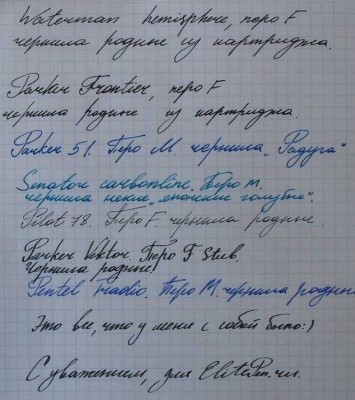 Waterman hemisphere, перо F
чернила родные из картриджа.
Parker Frontier, перо F
чернила родные из картриджа.
Parker 51. Перо М. чернила „Радуга“
Senator carbonline. Перо М.
чернила некие „японские голубые“.
Pilot 78. Перо F. чернила родные.
Parker Vektor. Перо F Stub.
Чернила родные!
Pentel Tradio. Перо М. чернила родные
Это все, что у меня с собой было:)
С уважением, для ElitePen.